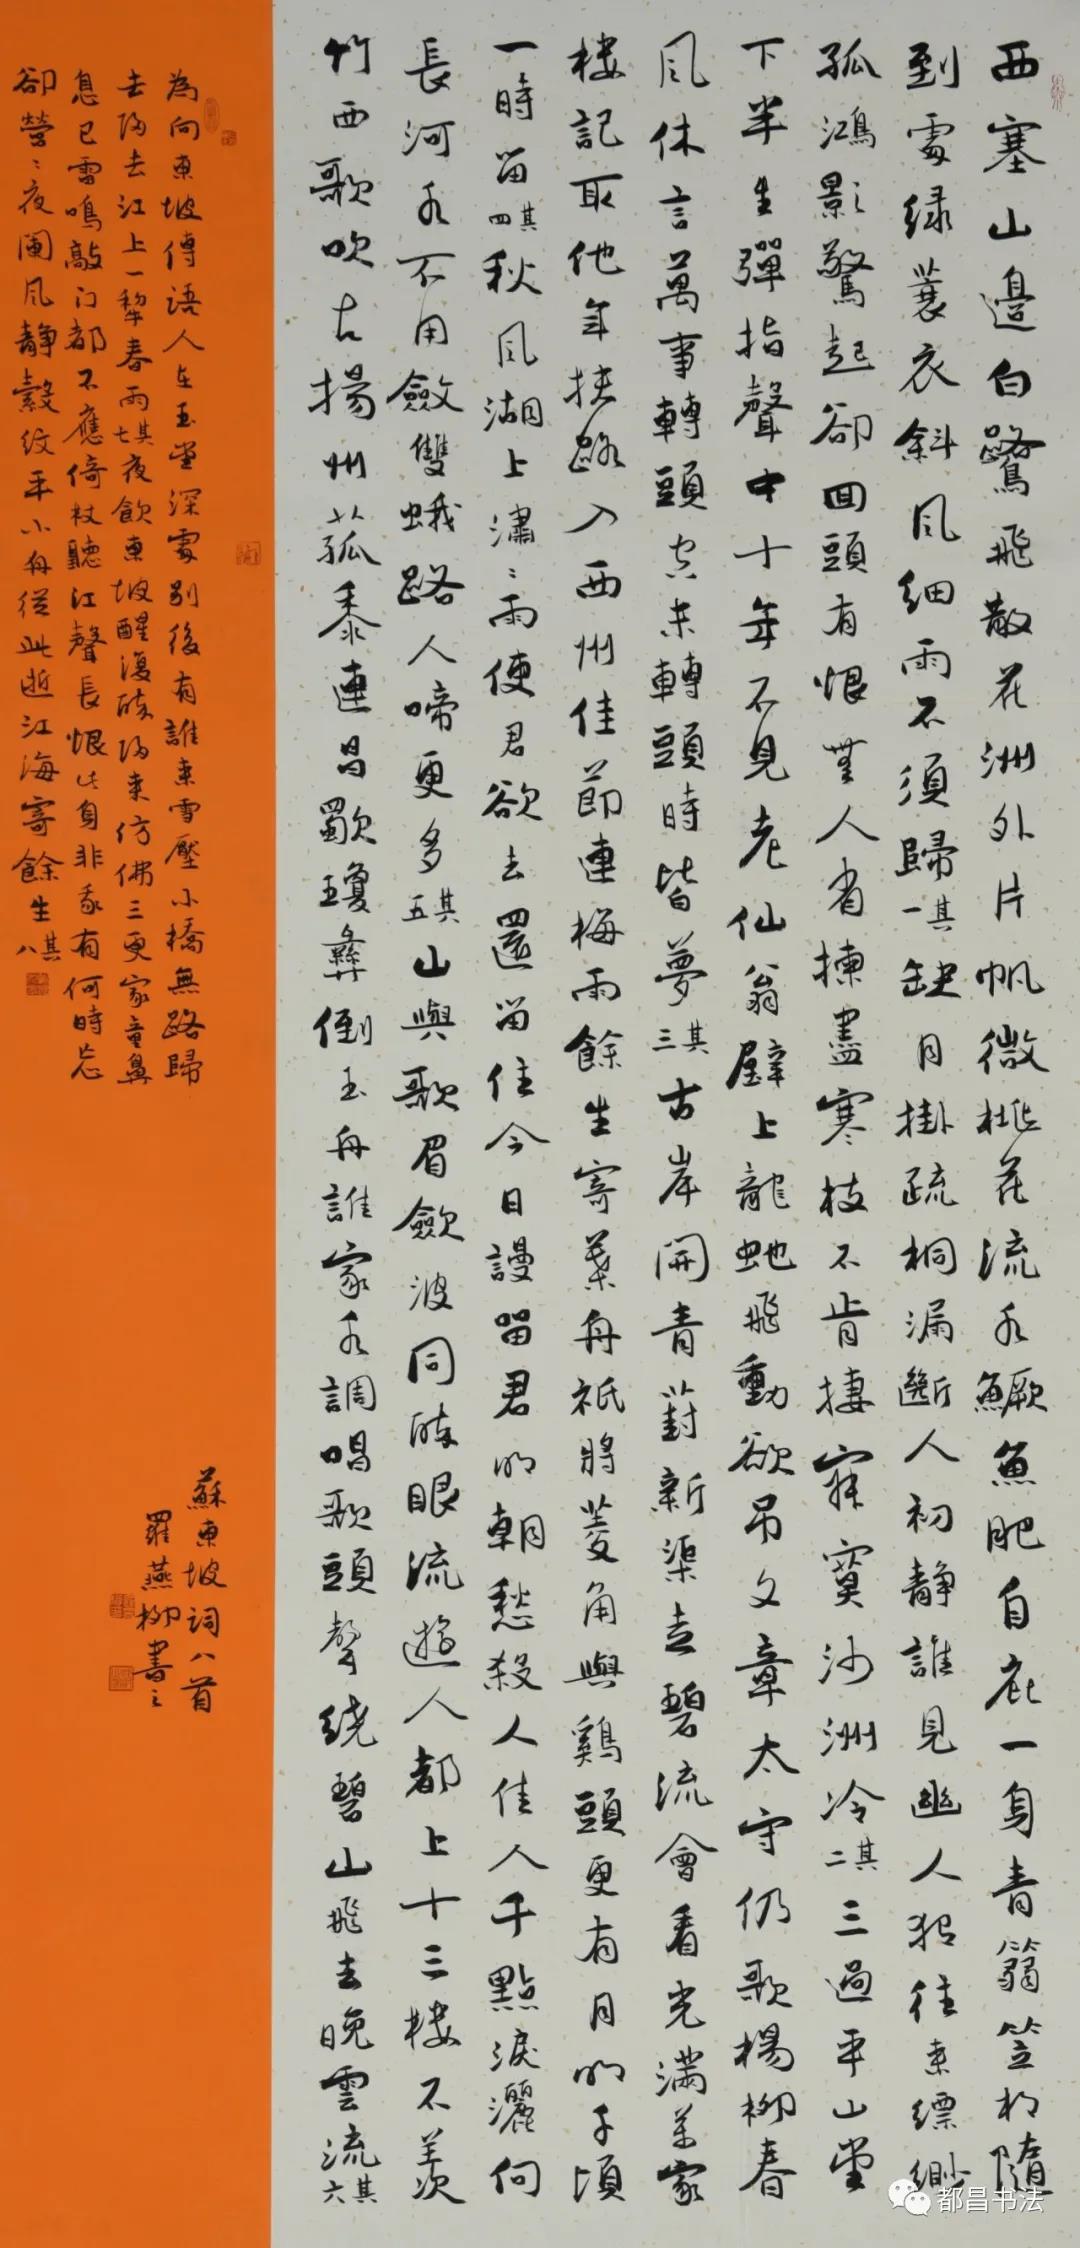 西塞山邊白鷺飛散花洲外片帆微桃花流水鱖魚肥自庇一身青篛笠相隨
到處綠蓑衣斜風細雨不須歸其一缺月掛疏桐漏斷人初靜誰見幽人獨往來縹緲
孤鴻影驚起卻回頭有恨無人省揀盡寒枝不肯棲寂寞沙洲冷其二三過平山堂
下半生彈指聲中十年不見老仙翁壁上龍蛇飛動欲吊文章太守仍歌楊柳春
風休言萬事轉頭空未轉頭時皆夢其三古岸開青葑新渠走碧流會看光滿萬家
樓記取他年扶路入西州佳節連梅雨餘生寄葉舟祇將菱角與鷄頭更有月明千頃
一時留其四秋風湖上瀟瀟雨使君欲去還留住今日謾留君明朝愁殺人佳人千點淚灑向
長河水不用斂雙蛾路人啼更多其五山與歌眉斂波同醉眼流遊人都上十三樓不羨
竹西歌吹古揚州菰黍連昌歜瓊彝倒玉舟誰家水調唱歌頭聲繞碧山飛去晚雲流其六
為向東坡傳語人在玉堂深處別後有誰來雪壓小橋無路歸
去歸去江上一犁春雨其七夜飲東坡醒復醉歸來仿佛三更家童鼻
息已雷鳴敲门都不應倚杖聽江聲長恨此身非我有何時忘
卻營營夜闌風靜縠紋平小舟從此逝江海寄餘生其八
蘇東坡詞八首
羅燕柳書之
都昌书法